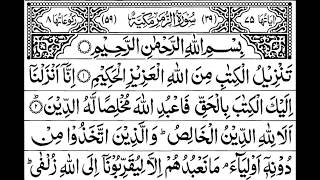 اٰیَاتُهَا ۷۵ (۳۹) سُوْرَةُ الزُّمَرِ مَكِّیَّةٌ (۵۹) رُكُوْعَاتُهَا ۸
بِسْمِ اللّٰهِ الرَّحْمٰنِ الرَّحِیْمِ
تَنْزِیْلُ الْكِتٰبِ مِنَ اللّٰهِ الْعَزِیْزِ الْحَكِیْمِ ۝۱ اِنَّاۤ اَنْزَلْنَاۤ
اِلَیْكَ الْكِتٰبَ بِالْحَقِّ فَاعْبُدِ اللّٰهَ مُخْلِصًا لَّهُ الدِّیْنَ ۝۲
اَلَا لِلّٰهِ الدِّیْنُ الْخَالِصُ ؕ وَالَّذِیْنَ اتَّخَذُوْا مِنْ
دُوْنِهٖۤ اَوْلِیَآءَ ۘ مَا نَعْبُدُهُمْ اِلَّا لِیُقَرِّبُوْنَاۤ اِلَی اللّٰهِ زُلْفٰی ؕ